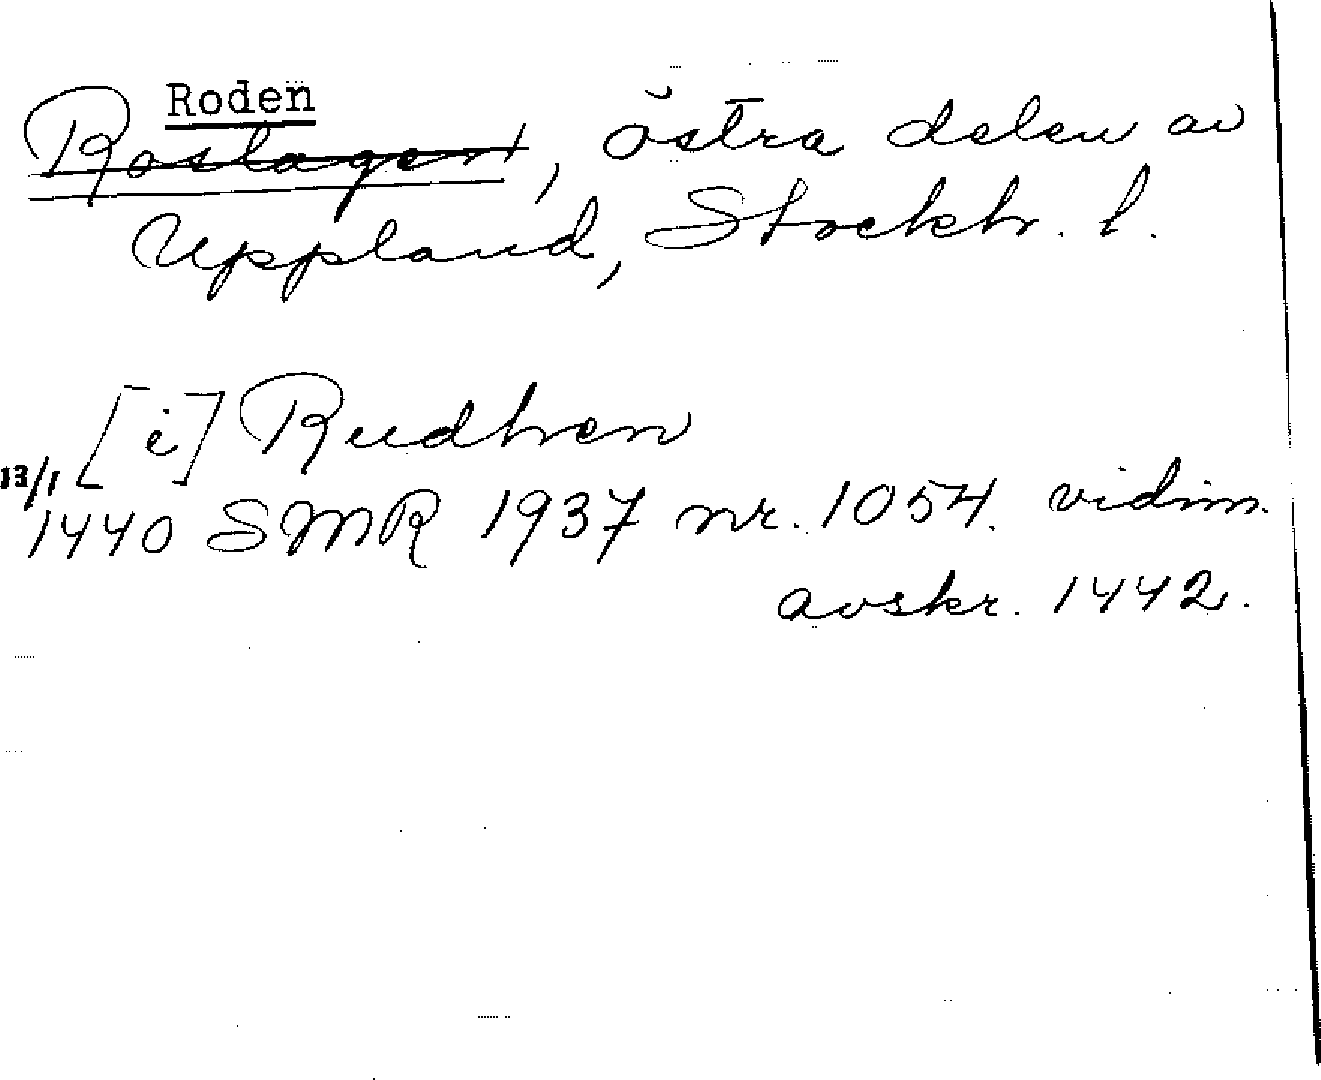 Roden
Roslagen, östra delen av
Uppland, Stockh. l.
[i] Rudhen
13/1
1440 SMR 1937 nr. 1054. vidim.
avskr. 1442.